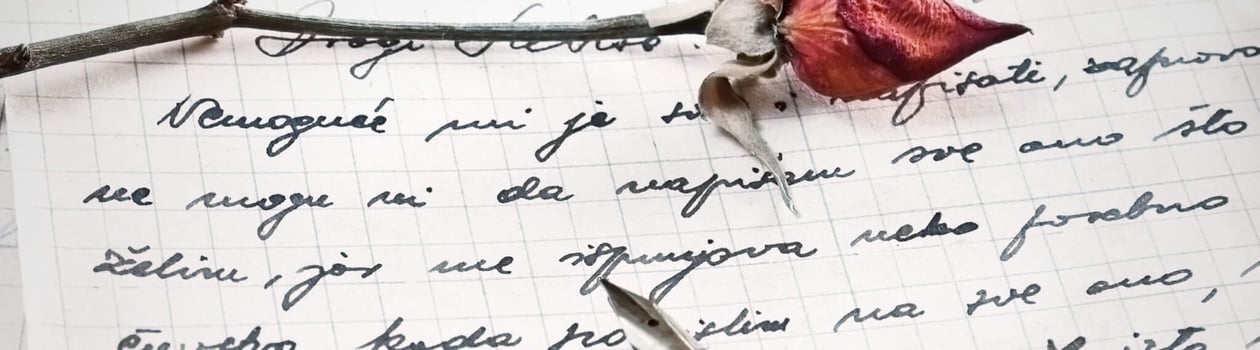 Dragi
Nemoguće mi je sv napisati, zapravo
ne mogu ni da napišem sve ono što
želim, jer me ispunjava neko posebno
kada na sve ono,